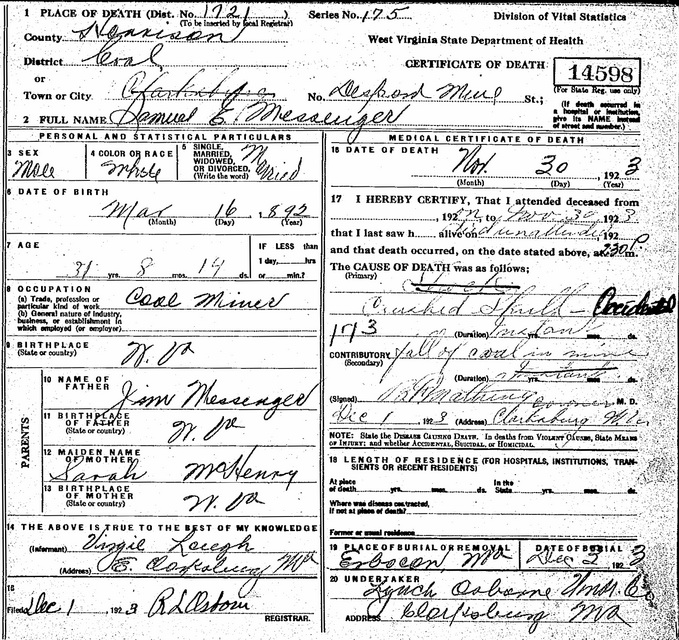 1 PLACE OF DEATH (Dist. No. 1721 Series No. 175 Division of Vital Statistics
(To be inserted by local Registrar)
County Harrison West Virginia State Department of Health
District Coal CERTIFICATE OF DEATH 14598
(For State Reg. use only)
or
Town or City Clarksburg No. Despard Mine St.;
(If death occurred in a hospital or institution, give its NAME instead of street and number.)
2 FULL NAME Samuel E. Messenger
PERSONAL AND STATISTICAL PARTICULARS
3 SEX Male
4 COLOR OR RACE White
5 SINGLE, MARRIED, WIDOWED, OR DIVORCED, (Write the word) Mried
6 DATE OF BIRTH
Mar 16, 1892
(Month) (Day) (Year)
7 AGE IF LESS than
1 day,.....hrs
31 yrs. 8 mos. 14 ds. or.....min.?
8 OCCUPATION
(a) Trade, profession or particular kind of work. Coal Miner
(b) General nature of industry, business, or establishment in which employed (or employer)
9 BIRTHPLACE
(State or country) W. Va
PARENTS
10 NAME OF FATHER Jim Messenger
11 BIRTHPLACE OF FATHER
(State or country) W. Va
12 MAIDEN NAME OF MOTHER Sarah McHenry
13 BIRTHPLACE OF MOTHER
(State or country) W. Va
14 THE ABOVE IS TRUE TO THE BEST OF MY KNOWLEDGE
(Informant) Virgie Lough
(Address) E. Clarksburg Wva
15
Filed Dec 1, 1923 R L Osborn
REGISTRAR.
MEDICAL CERTIFICATE OF DEATH
16 DATE OF DEATH
Nov. 30, 1923
(Month) (Day) (Year)
17 I HEREBY CERTIFY, That I attended deceased from
, 192 to Nov 30, 1923
that I last saw h alive on died unattended, 192
and that death occurred, on the date stated above, at 230 P m.
The CAUSE OF DEATH was as follows;
(Primary) Shock
Crushed Skull - Accidental
173 (Duration) Instant mos. ds.
CONTRIBUTORY fall of coal in mine
(Secondary)
(Duration) Instant yrs. mos. ds.
(Signed) coroner M. D.
Dec 1, 1923 (Address) Clarksburg W Va
NOTE: State the DISEASE CAUSING DEATH. In deaths from VIOLENT CAUSES, State MEANS OF INJURY; and whether ACCIDENTAL, SUICIDAL, or HOMICIDAL.
18 LENGTH OF RESIDENCE (FOR HOSPITALS, INSTITUTIONS, TRANSIENTS OR RECENT RESIDENTS)
At place of death yrs. mos. ds. In the State yrs. mos. ds.
Where was disease contracted, if not at place of death?
Former or usual residence
19 PLACE OF BURIAL OR REMOVAL DATE OF BURIAL
Erbacon Wva Dec 3 1923
20 UNDERTAKER Lynch Osborne Und. Co
ADDRESS Clarksburg Wva